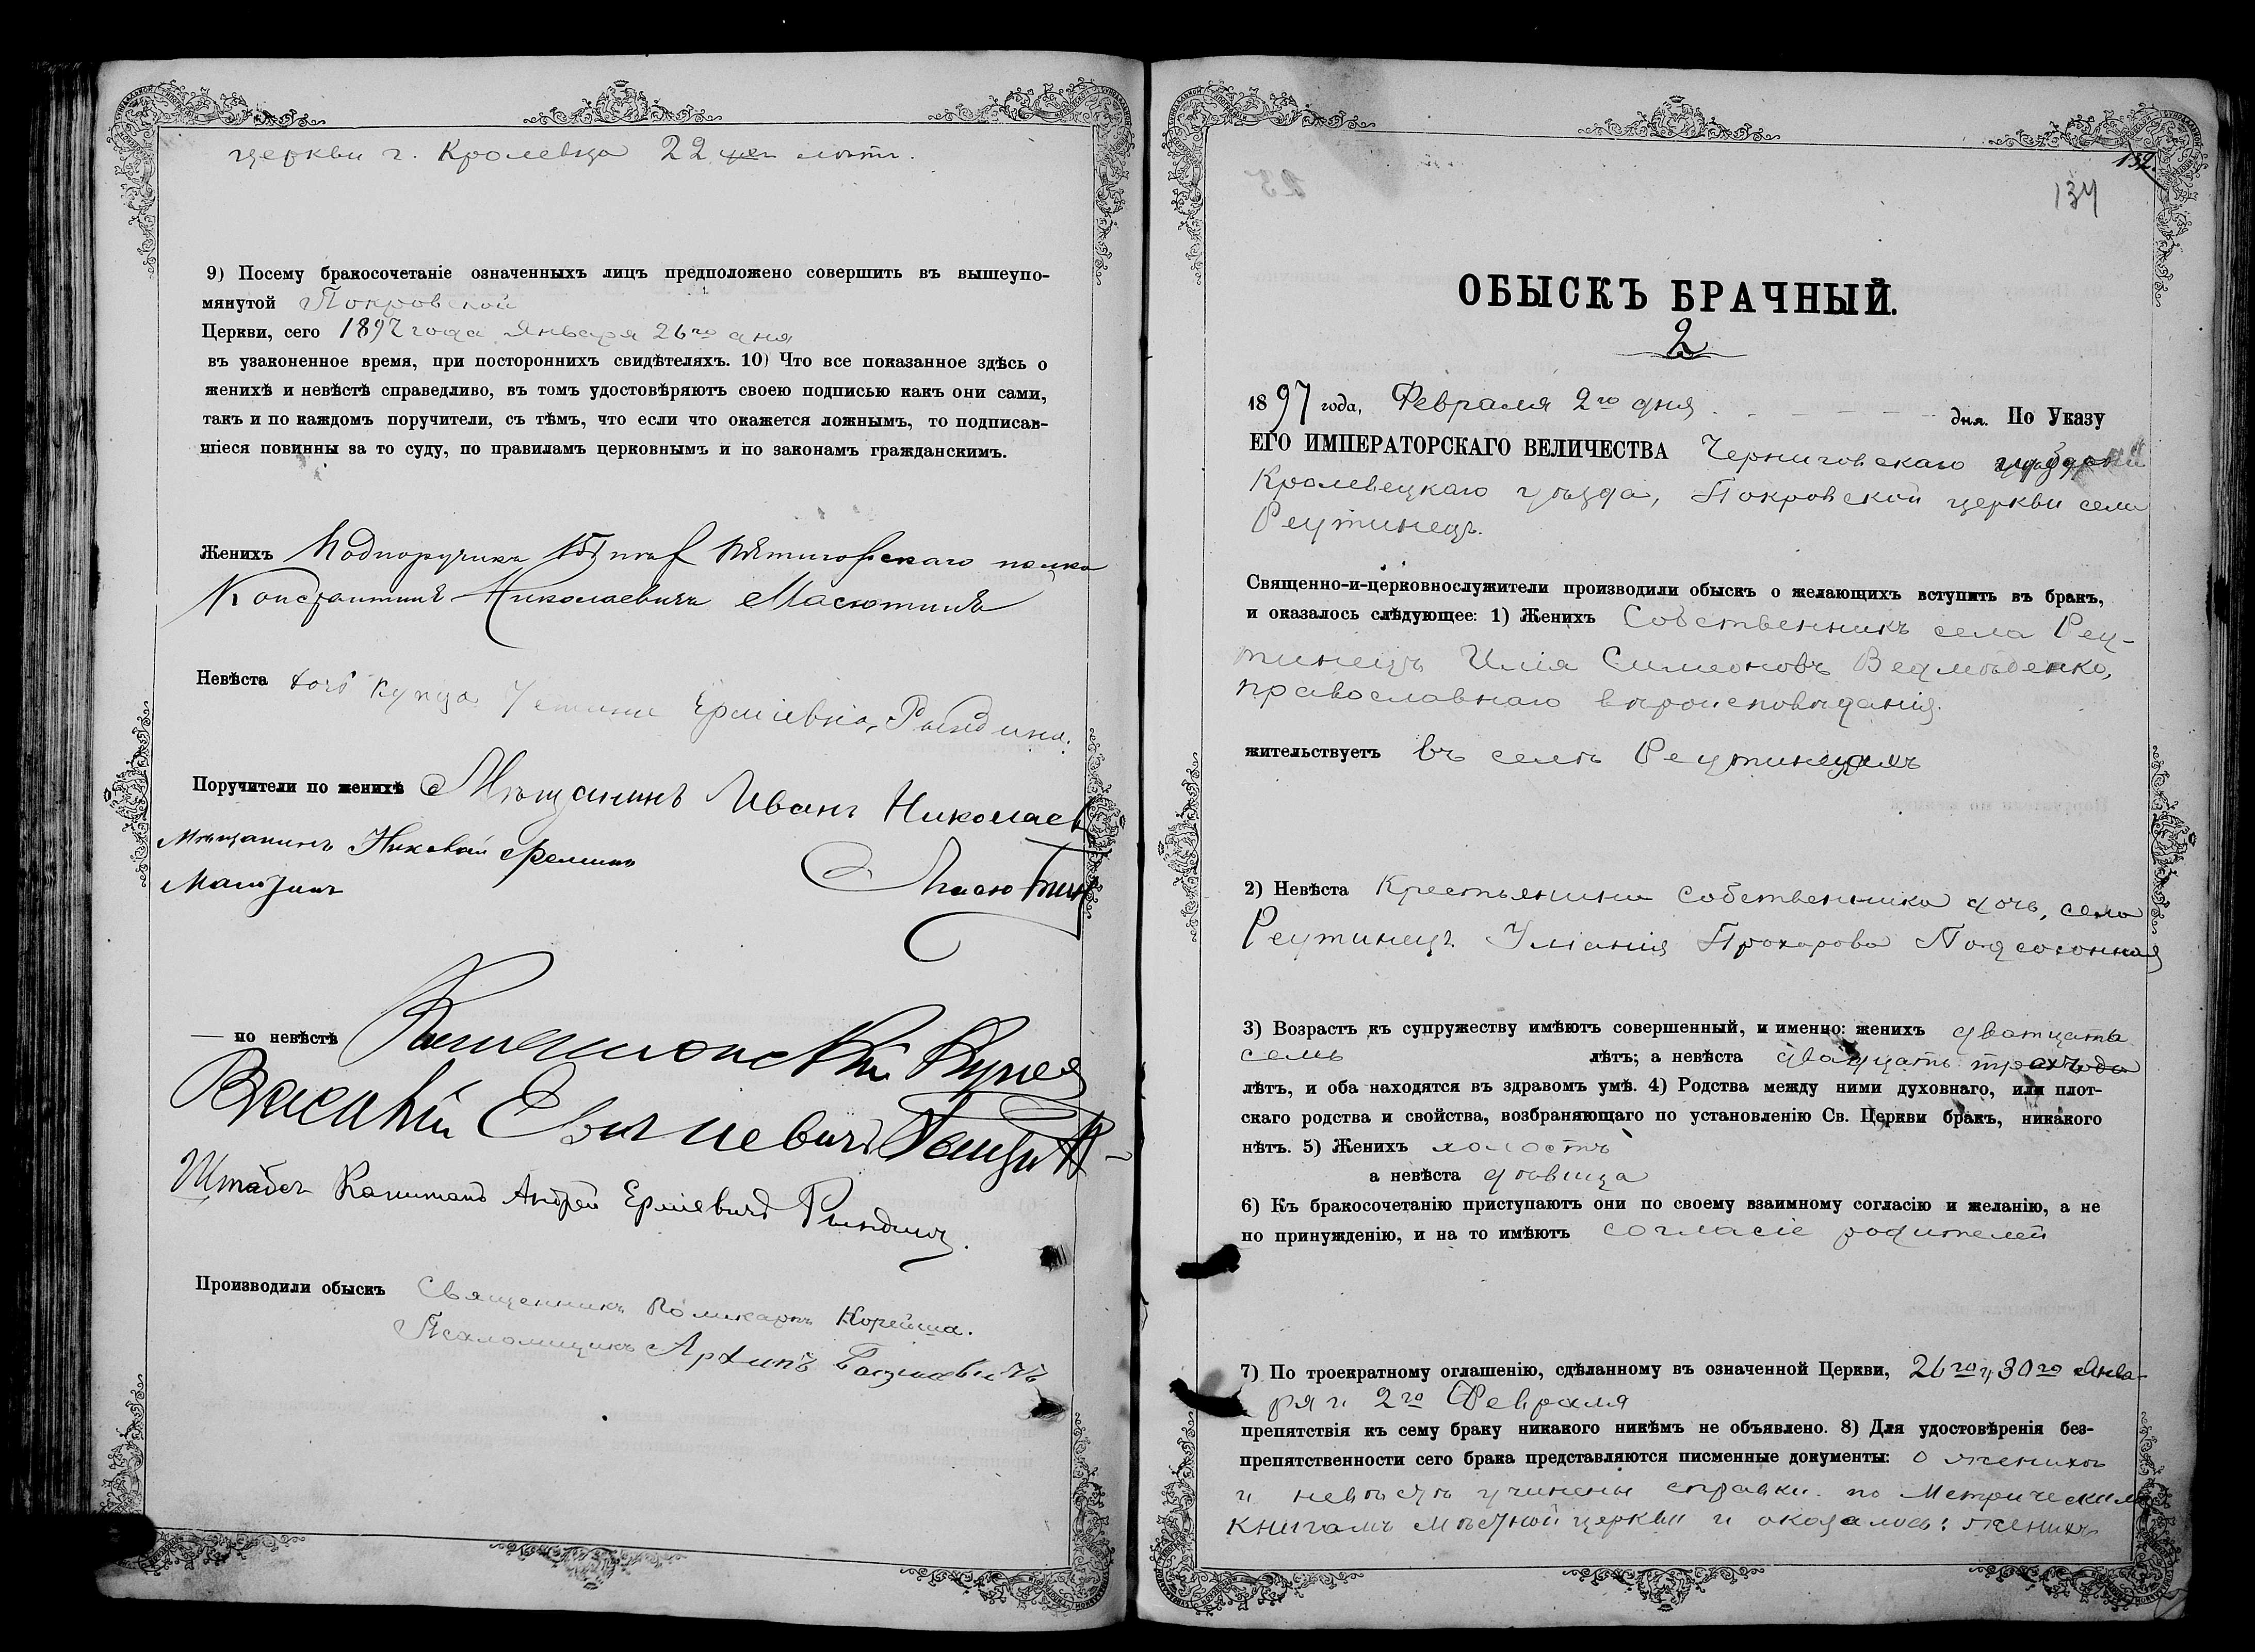 церкви г. Кролевца 22 лѣтъ.
9) Посему бракосочетаніе означенныхъ лицъ предположено совершить въ вышеупо-
мянутой Покровской
Церкви, сего 1897 года Января 26го дня
въ узаконенное время, при постороннихъ свидѣтеляхъ. 10) Что все показанное здѣсь о
женихѣ и невѣстѣ справедливо, въ томъ удостовѣряютъ своею подписью какъ они сами,
такъ и по каждомъ поручители, съ тѣмъ, что если что окажется ложнымъ, то подписав-
шіеся повинны за то суду, по правиламъ церковнымъ и по законамъ гражданскимъ.
Женихъ Подпоручикъ полка
Константинъ Николаевичъ Масютинъ
Невѣста дочь купца Ерміевна Рындина.
Поручители по женихѣ Мѣщанинъ Иванъ Николаев
Масютин
Мѣщанинъ
— по невѣстѣ
Василій
Штабсъ Капитанъ Андрей Ерміевичъ Рындинъ.
Производили обыскъ Священникъ Поликарпъ Корейша.
Псаломщикъ Архипъ
132.
134
ОБЫСКЪ БРАЧНЫЙ.
2
1897 года, Февраля 2го дня дня. По Указу
ЕГО ИМПЕРАТОРСКАГО ВЕЛИЧЕСТВА Черниговскаго
Кролевецкаго уѣзда, Покровской церкви села
Реутинецъ.
Священно-и-церковнослужители производили обыскъ о желающихъ вступить въ бракъ,
и оказалось слѣдующее: 1) Женихъ Собственникъ села Реу-
тинецъ Илія Симеоновъ Ведмѣденко,
православнаго вѣроисповѣданія.
жительствуетъ въ селѣ Реутинцахъ
2) Невѣста Крестьянина собственника дочь, села
Реутинецъ Уліанія Прохорова Подсосонная
3) Возрастъ къ супружеству имѣютъ совершенный, и именно: женихъ дватцать
семь лѣтъ; а невѣста двадцать
лѣтъ, и оба находятся въ здравомъ умѣ. 4) Родства между ними духовнаго, или плот-
скаго родства и свойства, возбраняющаго по установленію Св. Церкви бракъ, никакого
нѣтъ. 5) Женихъ холостъ
а невѣста дѣвица
6) Къ бракосочетанію приступаютъ они по своему взаимному согласію и желанію, а не
по принужденію, и на то имѣютъ согласіе родителей
7) По троекратному оглашенію, сдѣланному въ означенной Церкви, 26го, 30го Янва-
ря и 2го Февраля
препятствія къ сему браку никакого никѣмъ не объявлено. 8) Для удостовѣренія без-
препятственности сего брака представляются писменные документы: о женихѣ
и невѣстѣ учинены справки по Метрическимъ
книгамъ мѣстной церкви и оказалось: женихъ